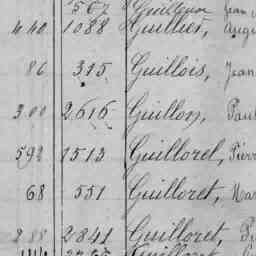 567 Guillon Jean
440 1088 Guillier, Augu
86 315 Guillois, Jean
300 2616 Guillon, Paul
592 1513 Guilloret, Pierr
68 551 Guilloret, Mar
288 2841 Guilloret, Pi